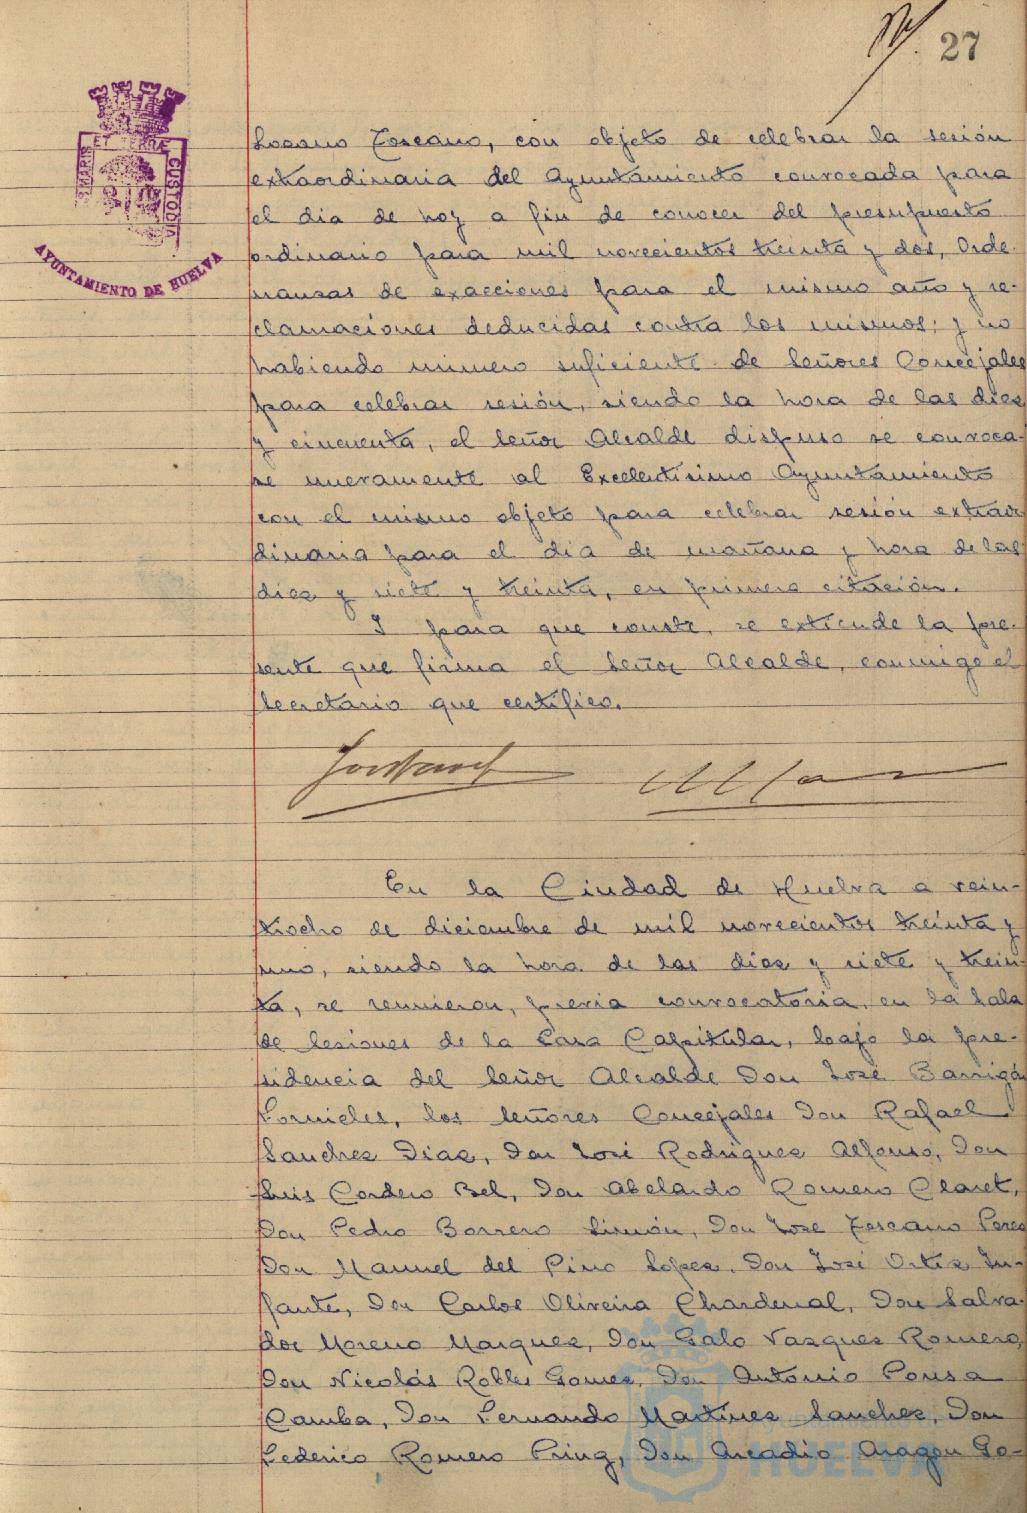 27
PORTUS MARIS ET TERRAE CUSTODIA
AYUNTAMIENTO DE HUELVA
Lozano Toscano, con objeto de celebrar la sesión
extraordinaria del Ayuntamiento convocada para
el dia de hoy a fin de conocer del presupuesto
ordinario para mil novecientos treinta y dos, Orde-
nanzas de exacciones para el mismo año y re-
clamaciones deducidas contra los mismos; y no
habiendo número suficiente de Señores Concejales
para celebrar sesión, siendo la hora de las diez
y cincuenta, el Señor Alcalde dispuso se convoca-
se nuevamente al Excelentísimo Ayuntamiento
con el mismo objeto para celebrar sesión extraor
dinaria para el dia de mañana y hora de las
diez y siete y treinta, en primera citación.
Y para que conste, se extiende la pre-
sente que firma el Señor Alcalde, conmigo el
Secretario que certifico.
En la Ciudad de Huelva a vein-
tiocho de diciembre de mil novecientos treinta y
uno, siendo la hora de las diez y siete y trein-
ta, se reunieron, previa convocatoria, en la Sala
de Sesiones de la Casa Capitular, bajo la pre-
sidencia del Señor Alcalde Don José Barrigón
Fornieles, los Señores Concejales Don Rafael
Sanchez Diaz, Don José Rodriguez Alfonso, Don
Luis Cordero Bel, Don Abelardo Romero Claret,
Don Pedro Borrero Limón, Don Jose Toscano Perez
Don Manuel del Pino Lopez, Don José Ortiz In-
fante, Don Carlos Oliveira Chardenal, Don Salva-
dor Moreno Marquez, Don Galo Vazquez Romero,
Don Nicolás Robles Gomez, Don Antonio Pousa
Camba, Don Fernando Martinez Sanchez, Don
Federico Romero Pring, Don Arcadio Aragon Go-
HUELVA